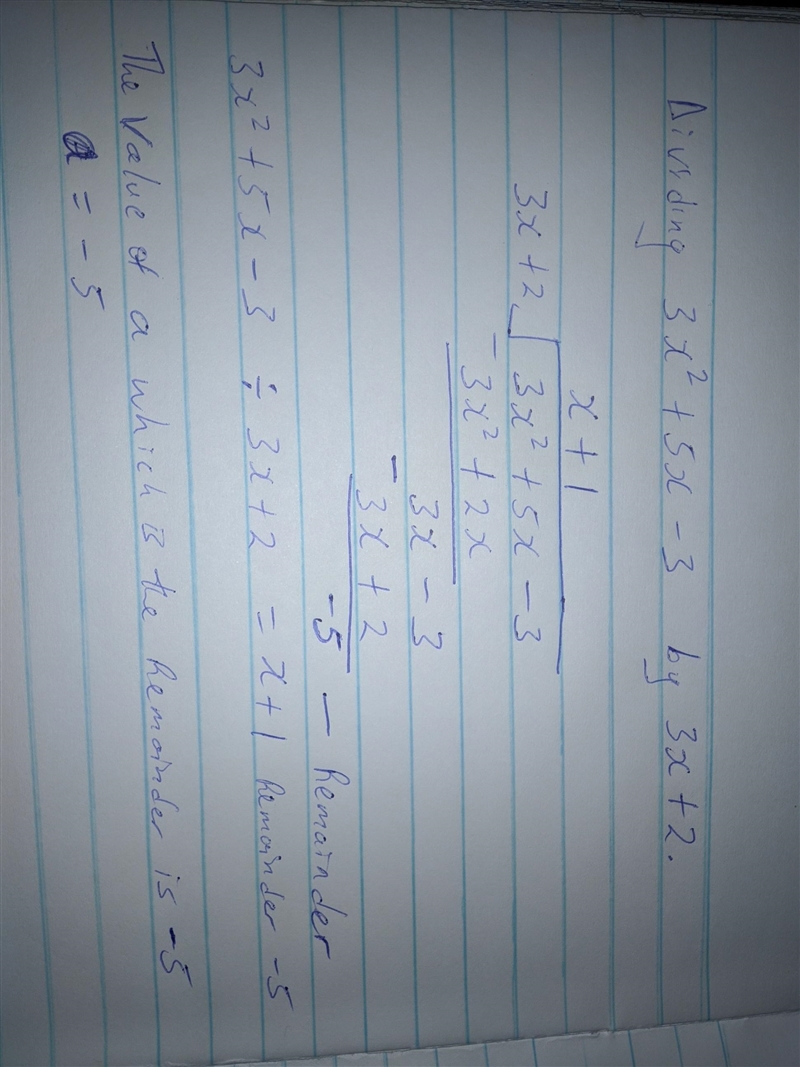 Dividing 3x² + 5x - 3 by 3x + 2.
x + 1
3x + 2 √ 3x² + 5x - 3
- 3x² + 2x
3x - 3
- 3x + 2
-5 — Remainder
3x² + 5x - 3 ÷ 3x + 2 = x + 1 Remainder -5
The Value of a which is the Remainder is -5
a = -5